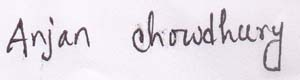 Anjan Chowdhury